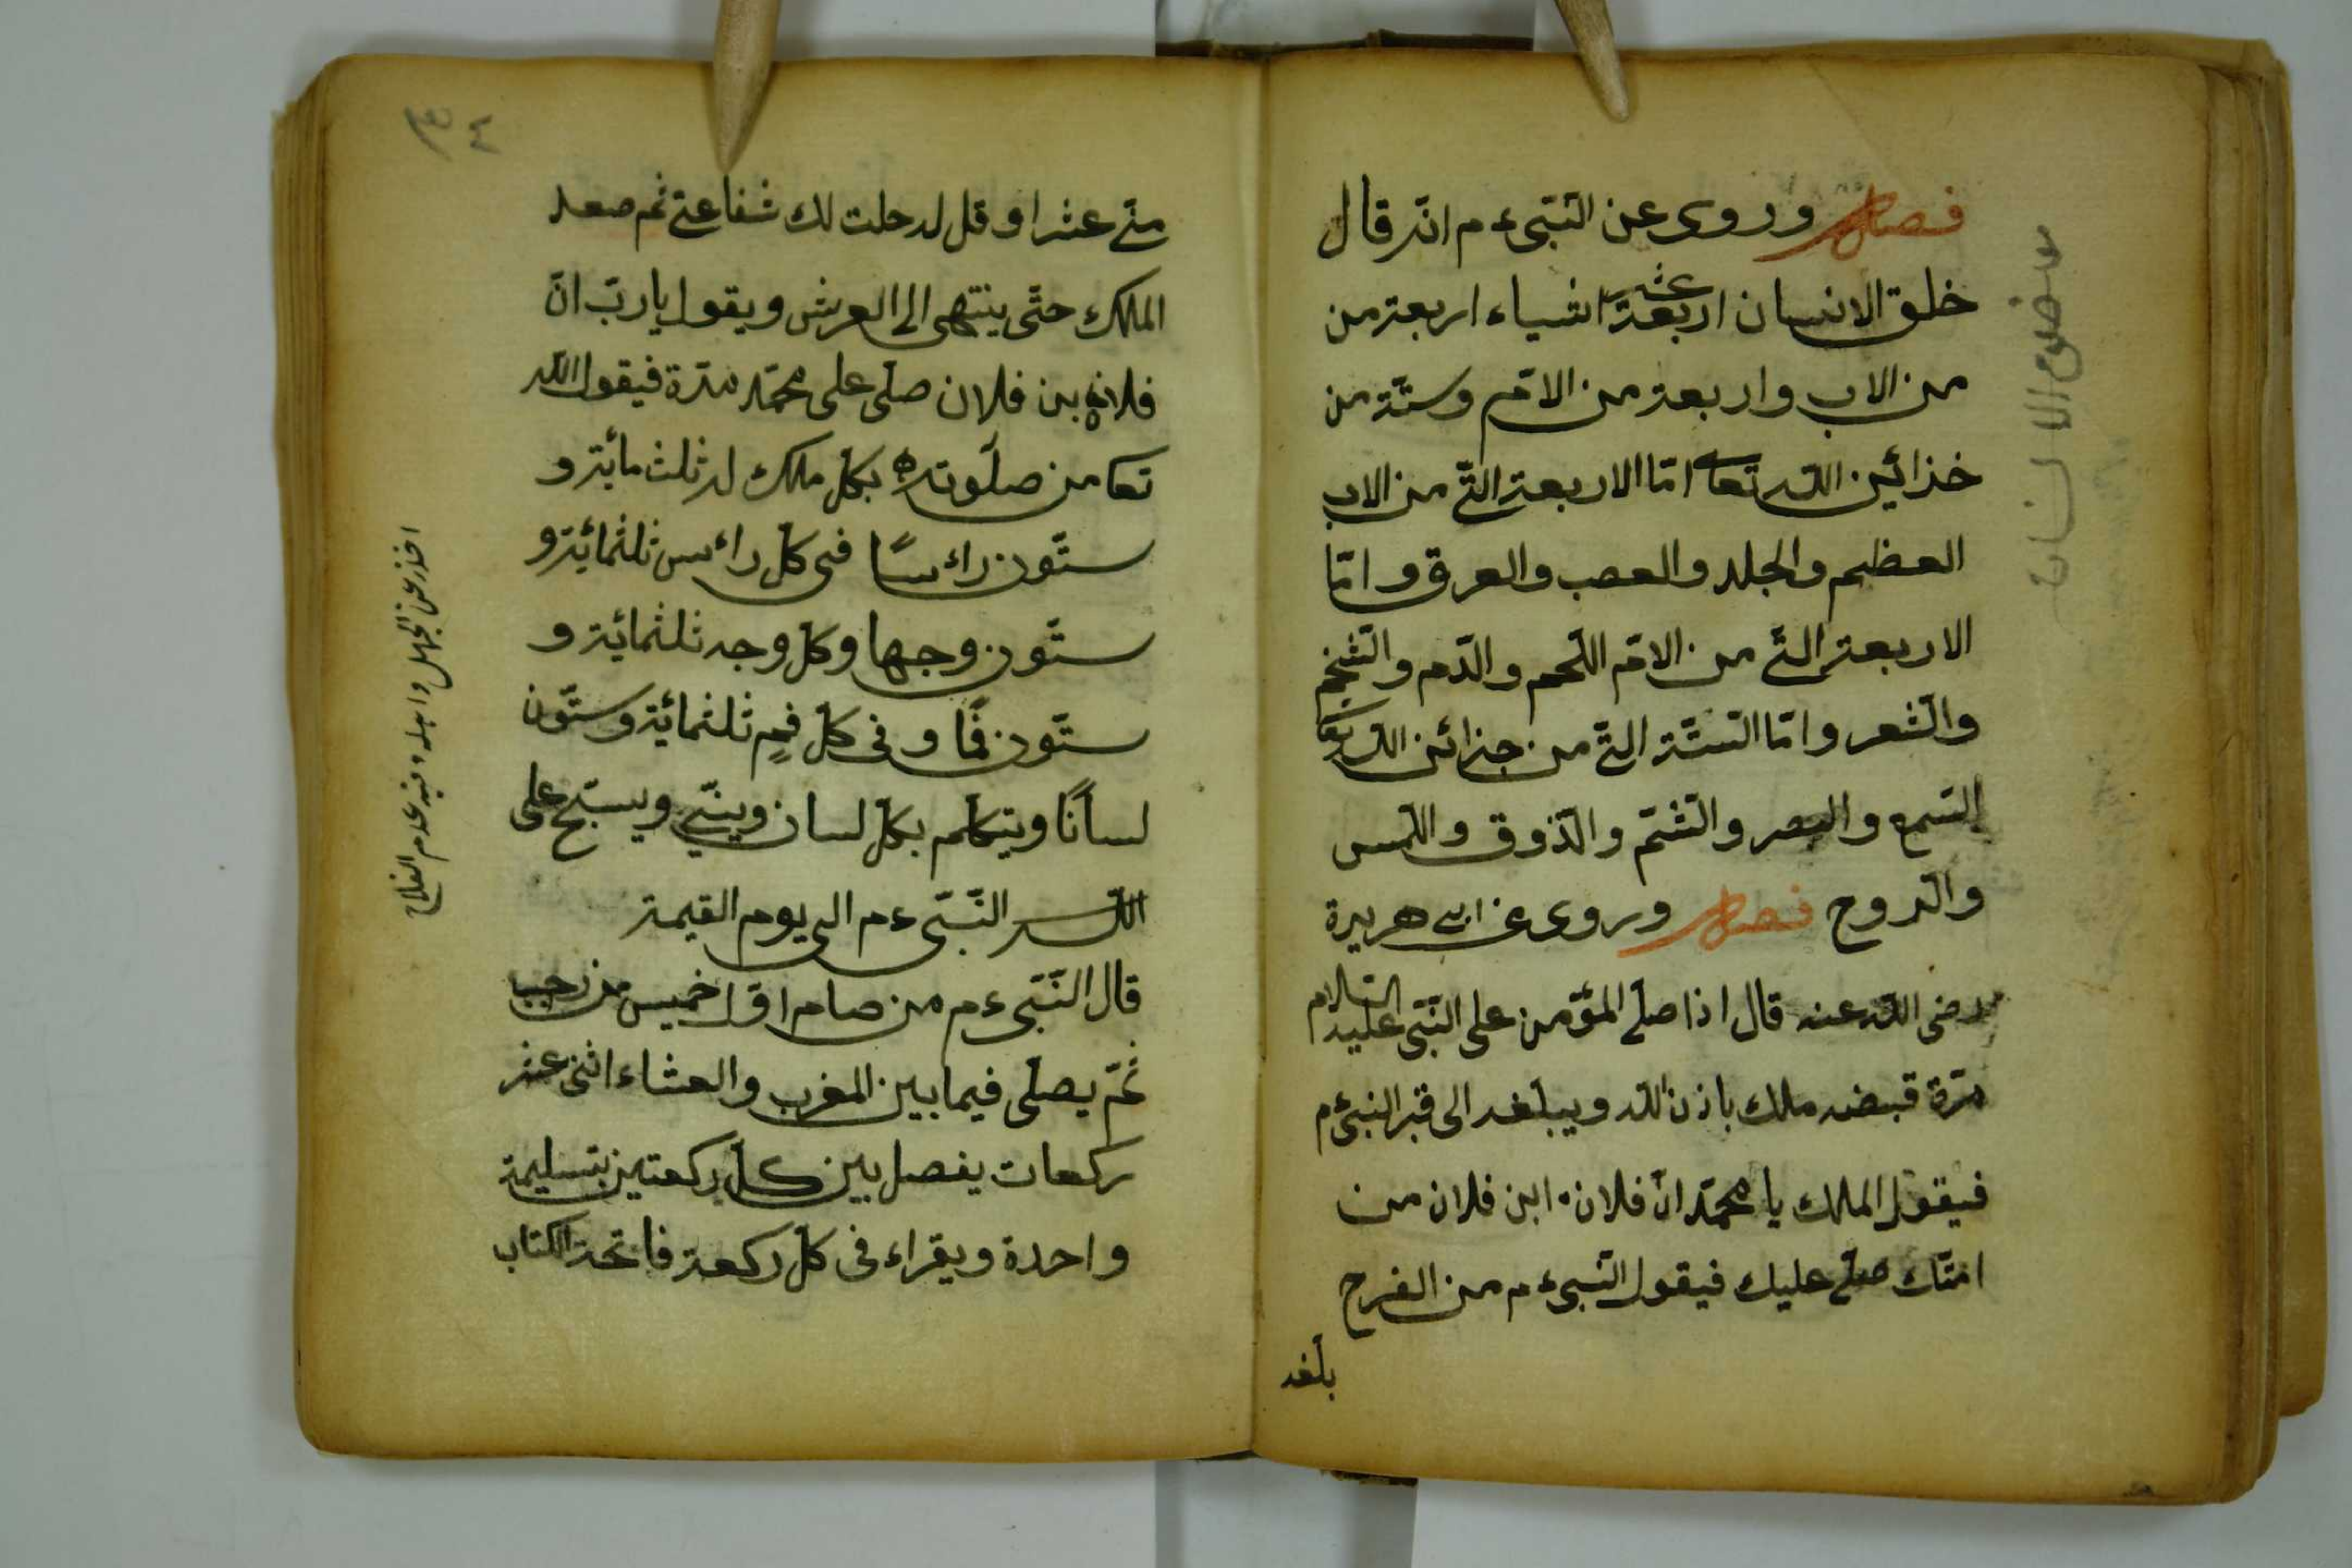 فصل وروى عن النّبى ءم انّه قال
خلق الانسان اربعة عشر اشياء اربعة من
من الاب واربعة من الامّ وستّة من
خزائين اللّه تعا امّا الاربعة الّتى من الاب
العظم والجلد والعصب والعرق وامّا
الاربعة الّتى من الامّ اللّحم والدّم والشّخم
والشّعر وامّا السّتّة الّتى من جزائن اللّه تعا
السّمع والبصر والشّمّ والذّوق واللّمس
والرّوح فصل وروى عن ابى هريرة
رضى اللّه عنه قال اذا صلّى المؤمن على النّبى عليه السّلام
مرّة قبضه ملك باذن اللّه ويبلغه الى قبر النبىءم
فيقول الملك يا محمّد انّ فلان ابن فلان من
امّتك صلّى عليك فيقول النّبىءم من الفرح
بلّغه
منّى عشرا وقل له حلت لك شفاعتى ثم صعد
الملك حتّى ينتهى الى العرش ويقول يا ربّ انّ
فلان بن فلان صلّى على محمّد مرّة فيقول اللّه
تعا من صلوته بكلّ ملك له ثلث مائة و
ستّون رائسًا فى كلّ رائس ثلثمائة و
ستّون وجها وكلّ وجه ثلثمائة و
ستّون فمًا وفى كلّ فمٍ ثلثمائة وستّون
لسانًا ويتكلّم بكلّ لسان ويسبّح على
النّبّى ءم الى يوم القيمة
قال النّبّى ءم من صام اوّل خميس من رجب
ثمّ يصلّى فيما بين المغرب والعشاء اثنى عشر
ركعات يفصل بين كلّ ركعتين بتسليمة
واحدة ويقراء فى كلّ ركعة فاتحة الكتاب